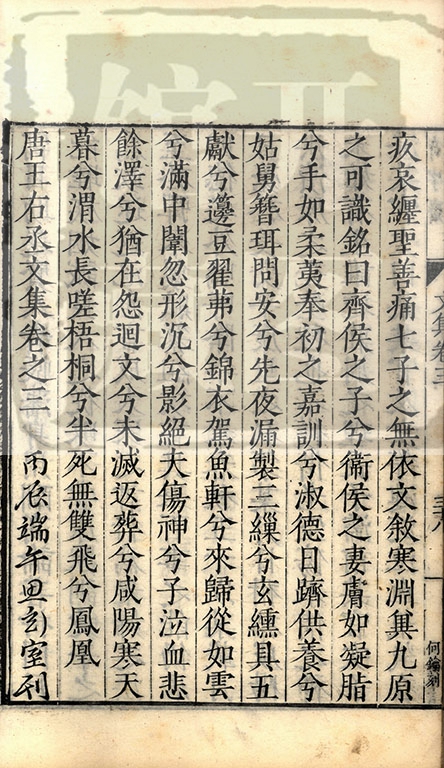 疚哀纏聖善痛七子之無依文敘寒淵兾九原
之可識銘曰齊侯之子兮衞侯之妻膚如凝脂
兮手如柔荑奉初之嘉訓兮淑德日躋供養兮
姑舅簪珥問安兮先夜漏製三繅兮玄纁具五
獻兮籩豆翟茀兮錦衣駕魚軒兮來歸從如雲
兮滿中闈忽形沉兮影絕夫傷神兮子泣血悲
餘澤兮猶在怨迴文兮未滅返葬兮咸陽寒天
暮兮渭水長嗟梧桐兮半死無雙飛兮鳳凰
唐王右丞文集卷之三
丙辰端午思玄室刊
何鑰刻